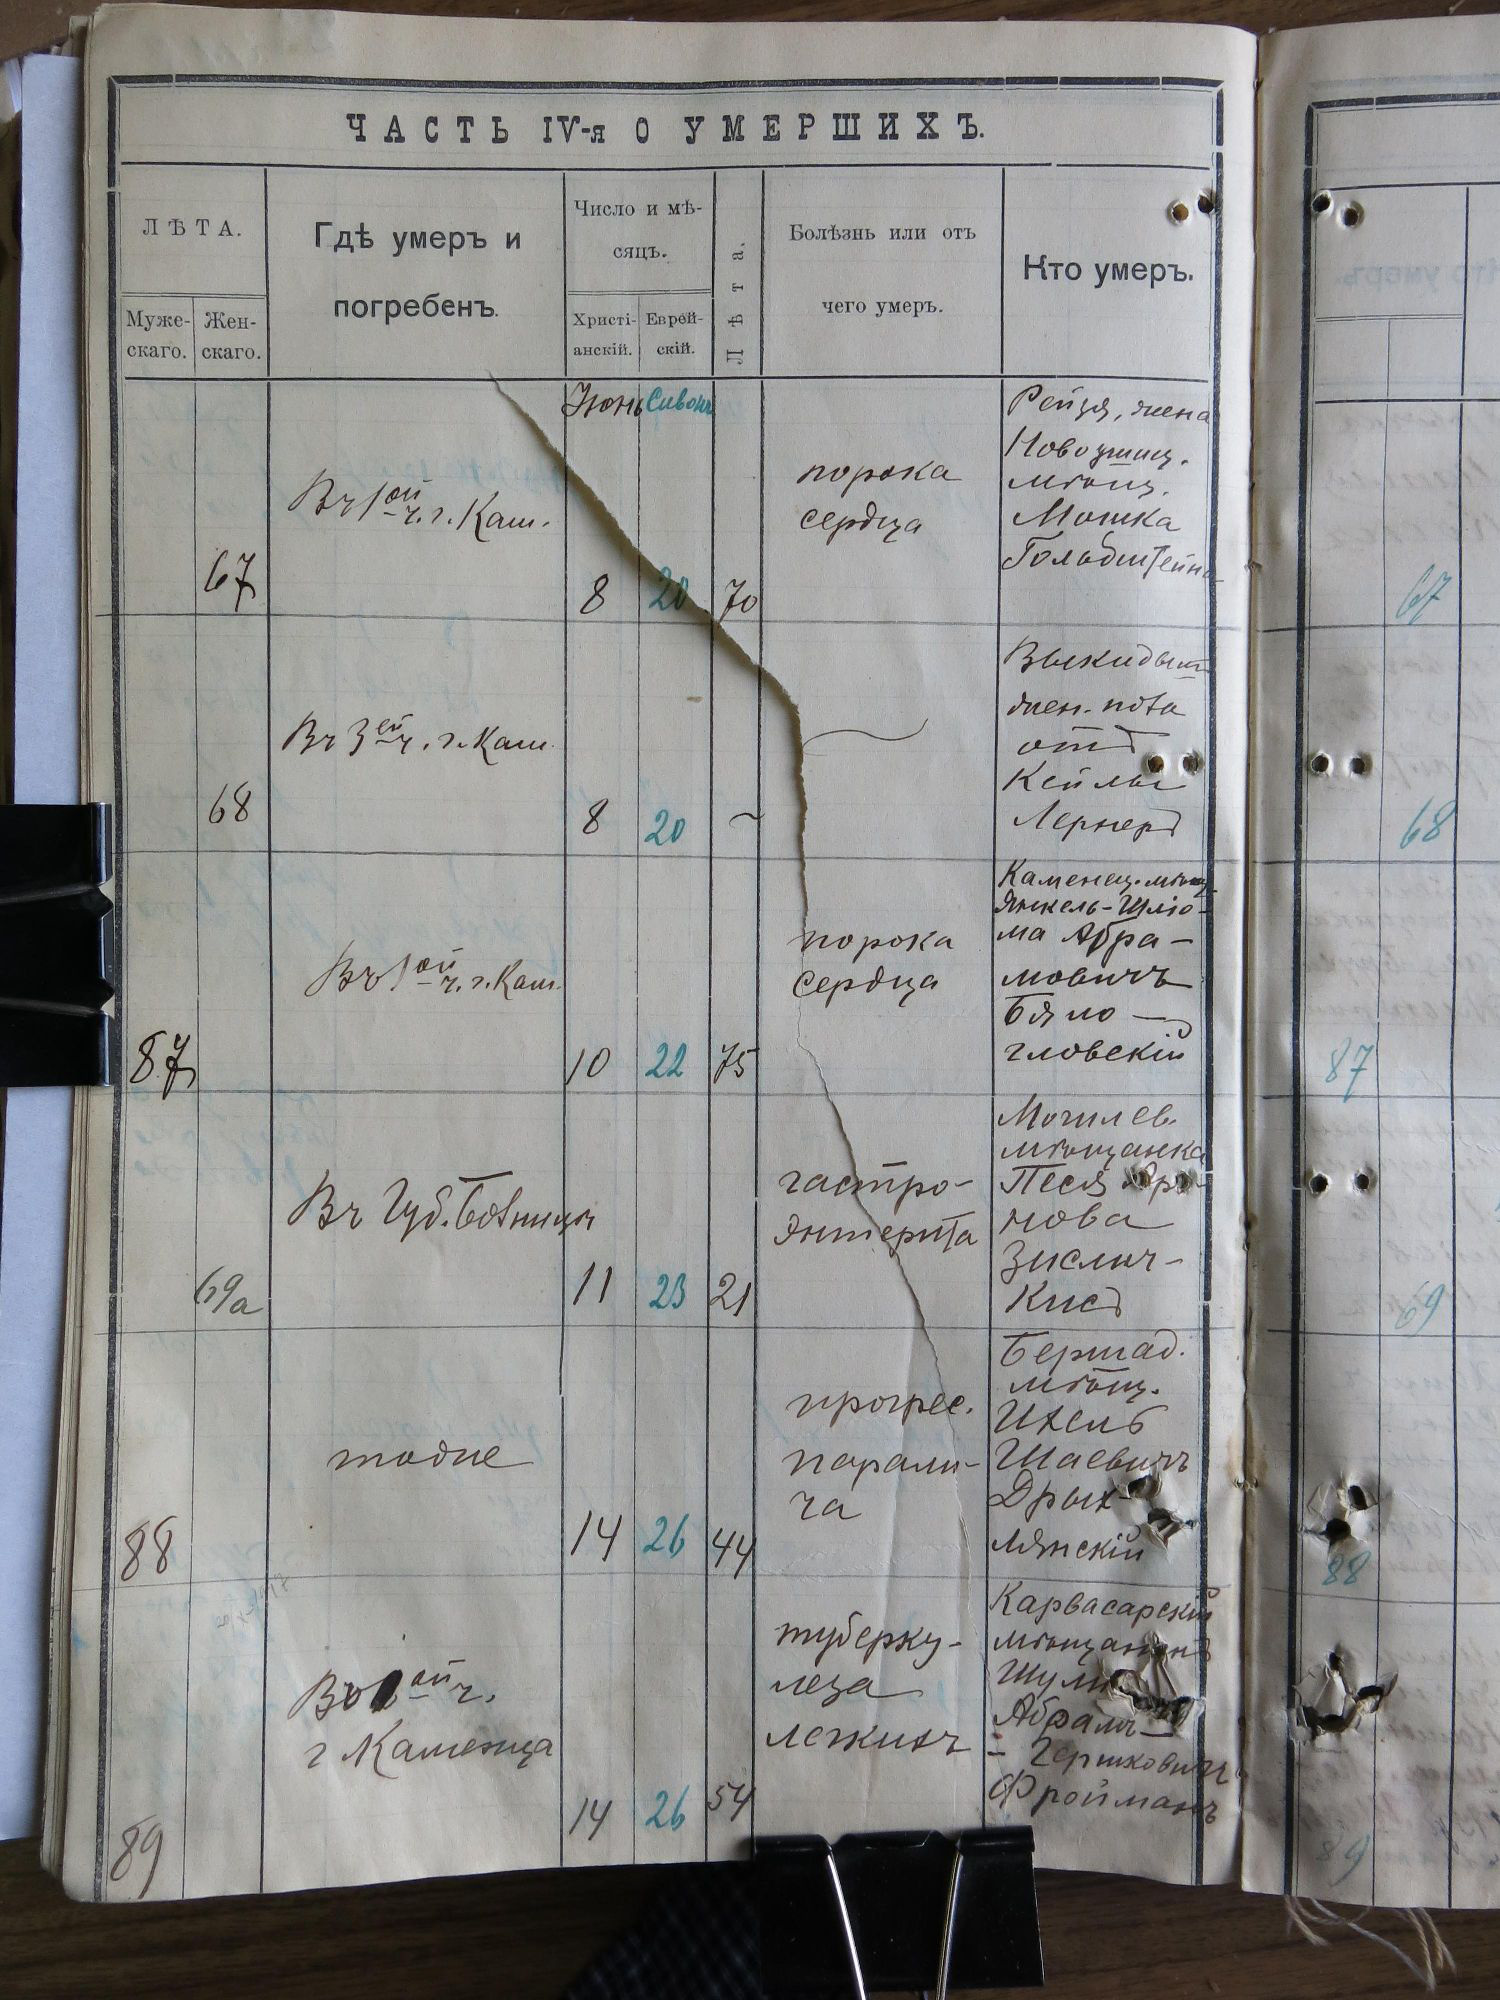 ЧАСТЬ IV-я О УМЕРШИХЪ.
ЛѢТА.
Муже-
скаго.
Жен-
скаго.
Гдѣ умеръ и
погребенъ.
Число и мѣ-
сяцъ.
Христі-
анскій.
Еврей-
скій.
Лѣта.
Болѣзнь или отъ
чего умеръ.
Кто умеръ.
67
Въ 1ой ч. г. Кам.
Іюнь
8
Сивонъ
20
70
порока
сердца
Рейзя, жена
Новоушиц.
мѣщ.
Мошка
Гольдштейна
67
68
Въ 3ей ч. г. Кам.
8
20
~
Выкидыш
жен. пола
отъ
Кейлы
Лернеръ
68
87
Въ 1ой ч. г. Кам.
10
22
75
порока
сердца
Каменец. мѣщ.
Янкель-Шлио-
ма Абра-
мовичъ
Бяло-
гловскій
87
69а
Въ Губ. Больницѣ
11
23
21
гастро-
энтерита
Могилев.
мѣщанка
Песя
нова
Зислич-
Кисъ
69
88
тодие
14
26
44
прогрес.
парали-
ча
Бершад.
мѣщ.
Ихель
Шаевичъ
Дрых-
лянскій
88
89
ой ч.
г Каменца
14
26
54
туберку-
леза
легкихъ
Карвасарскій
мѣщанинъ
Абрамъ-
- Гершковичъ
Фройманъ
89